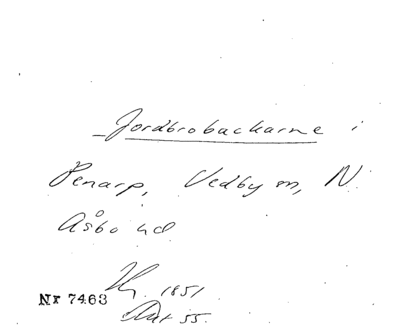 Jordbrobackarne i
Penarp, Vedby sn, N.
Åsbo hd
1851
Nr 7463
Akt 55.